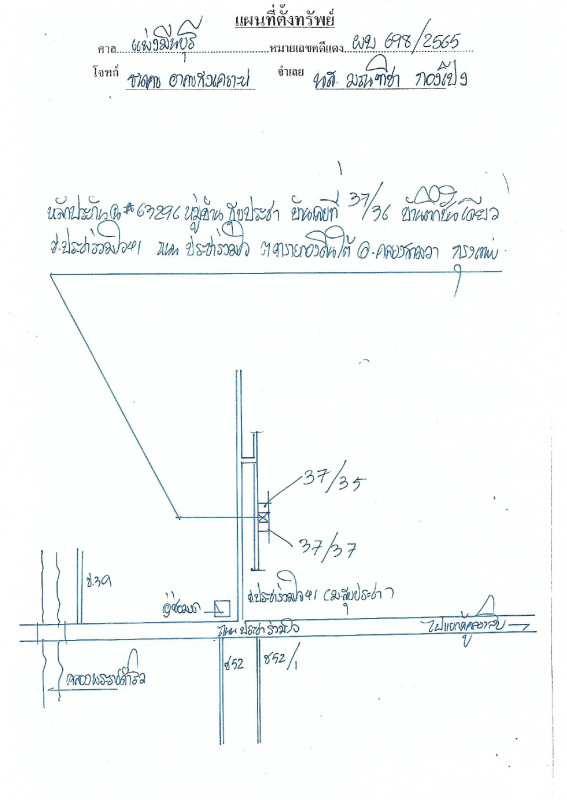 แผนที่ตั้งทรัพย์
ศาล แพ่งมีนบุรี หมายเลขคดีแดง ผบ 698/2565
โจทก์ ธนาคาร อาคารสงเคราะห์ จำเลย นส. มณฑิชา กองโปง
หลักประกัน #63296 หมู่บ้าน ชัยประชา บ้านเลขที่ 37/36 บ้าน ชั้นเดียว
ซ.ประชาร่วมใจ 41 ถนน ประชาร่วมใจ ต.ทรายกองดินใต้ อ.คลองสามวา กรุงเทพ
37/35
37/37
ซ.39
อู่ซ่อมรถ
ซ.ประชาร่วมใจ 41 (ม.ชัยประชา)
ถนน ประชาร่วมใจ
ไปแยก
ซ52
ซ52/1
คลองพระราชดำริ